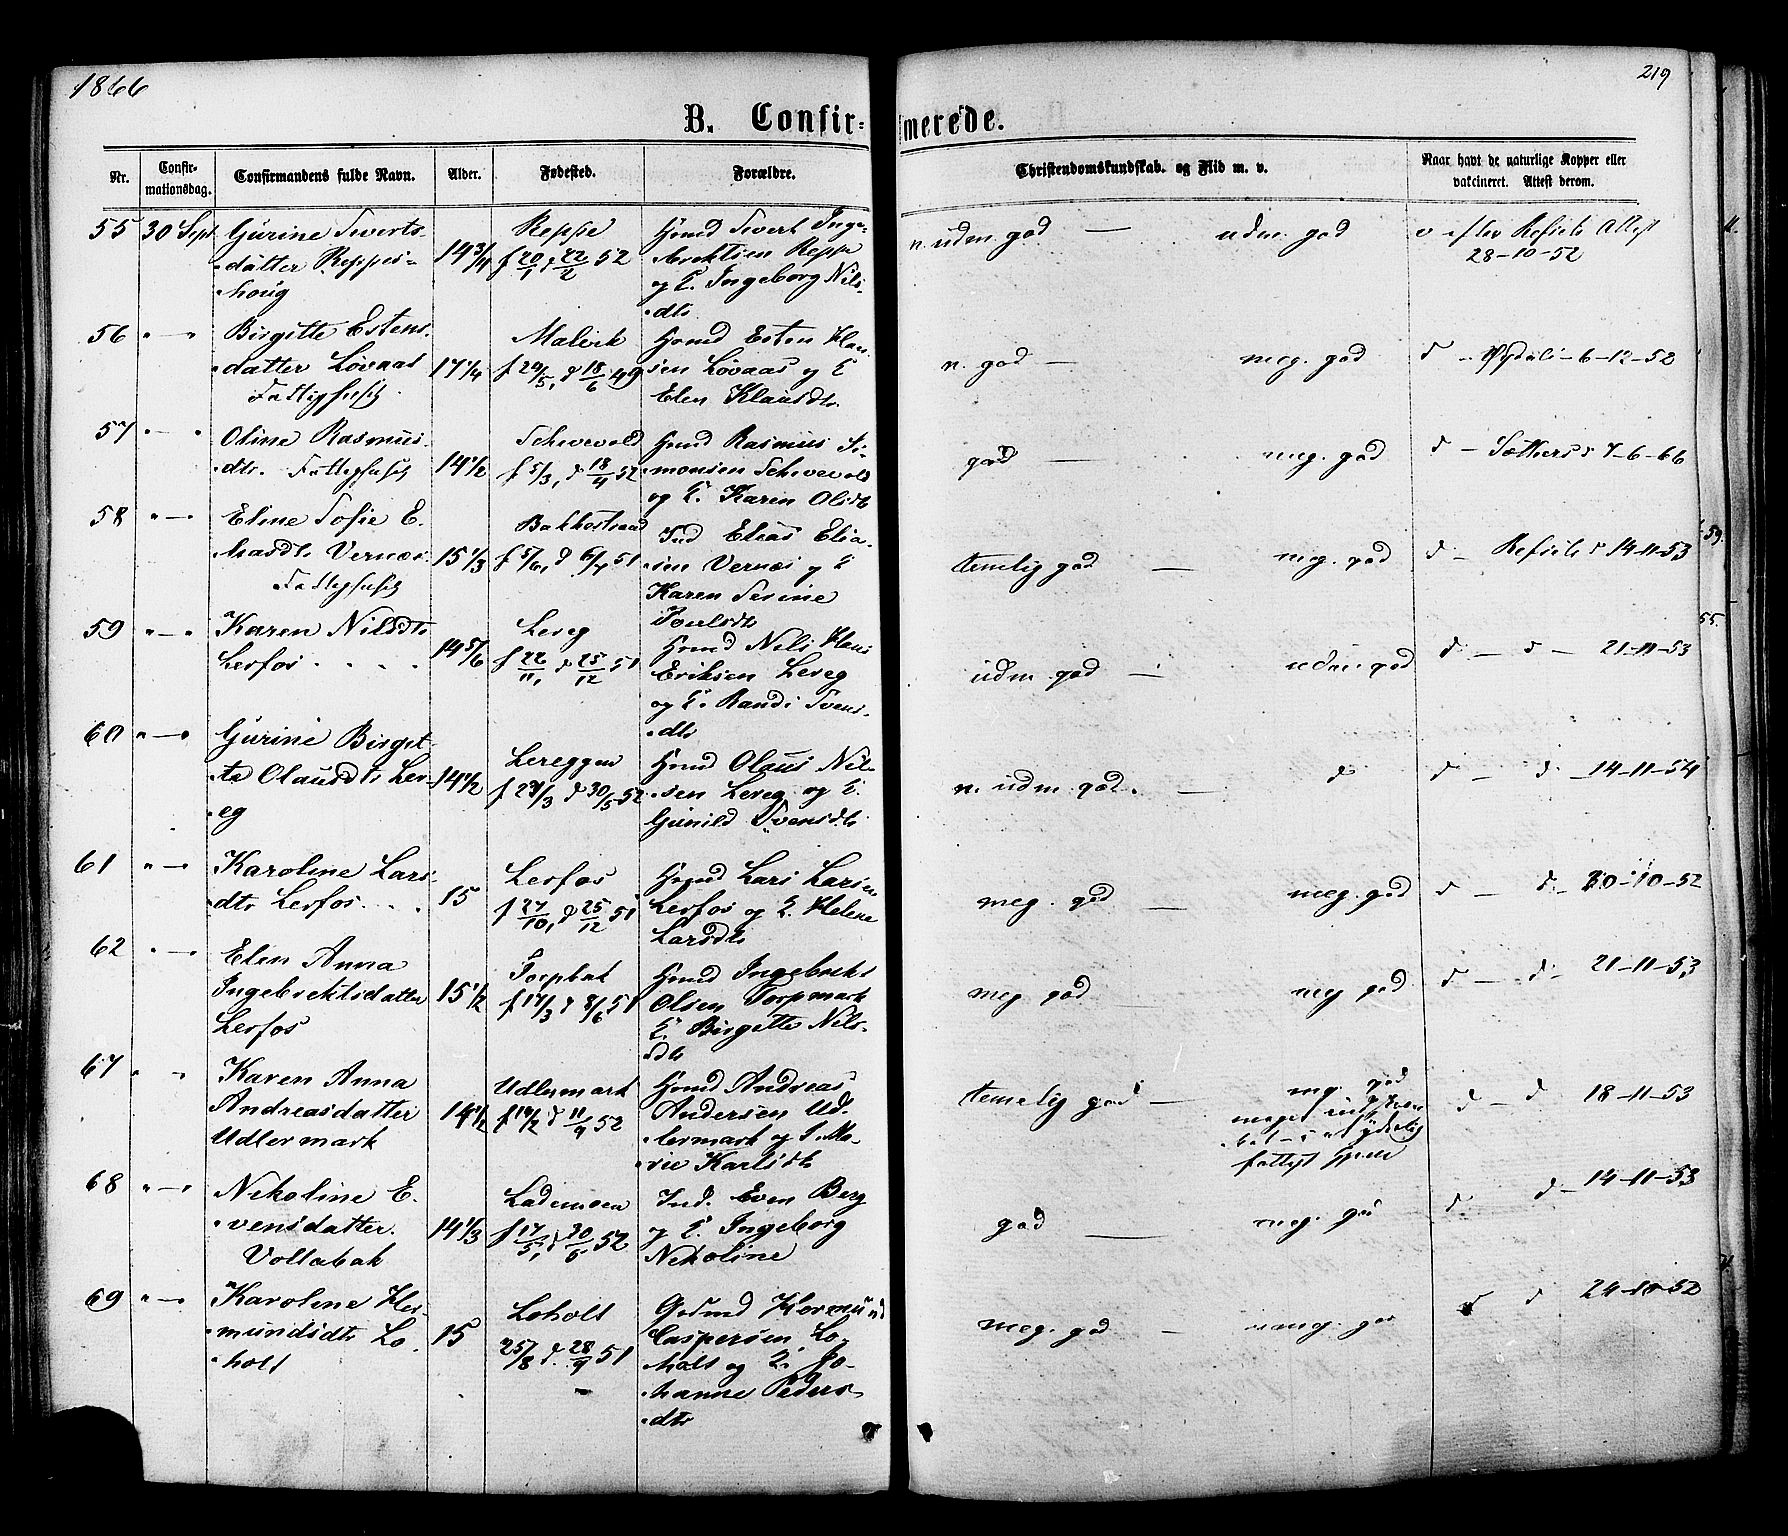 1866
219
B. Confir=
merede.
Nr.
Confir-
mationsdag.
Confirmandens fulde Navn.
Alder.
Fødested.
Forældre.
Christendomskundskab. og Flid m. v.
Naar havt de naturlige Kopper eller
vakcineret. Attest derom.
55 30 Sept Gurine Sivertsdatter Reppes-
houg
14 3/4
Reppe
f 20/1 d 22/2 52
Hmd Sivert Inge-
brektsen Reppe
og E. Ingeborg Nils-
dtr
n. udm. god — udm. god
v efter Refsets Attest
28-10-52
56 " — " Birgitte Estens-
datter Løvaas
Fattighuset
17 1/4
Malvik
d 18/6 49
Hmd Esten Klau-
sen Løvaas og E
Elen Klausdtr
n. god — meg. god
d - 6-12-52
57 " — " Oline Rasmus-
dtr. Fattighuset
14 1/2
f 5/3, d 18/4 52
Hmd Rasmus Si-
monsen
og E. Karen Olsdtr
god — meg. god
d - 7-6-66
58 " — " Eline Sofie E-
liasdtr Vernæs
Fattighuset
15 1/3
Bakkestrand
f 5/6, d 6/7 51
Ind Elias Elia-
sen Vernæs og E
Karen Serine
temelig god — meg. god
d - Refsets d 14-11-53
59 " — " Karen Nilsdtr
Lerfos
14 5/6
Lereg
f 22/11, d 25/12 51
Hmd Nils Klaus
Eriksen Lereg
og E. Randi Svens-
dtr
udm. god — udm. god
d — d — 21-11-53
60 " — " Gurine Birgit-
te Olausdtr Ler-
eg
14 1/2
Lereggen
d 30/5 52
Hmd Olaus Nil-
sen Lereg og E.
Gunild Svensdtr
n. udm. god. — d
d — d — 14-11-54
61 " — " Karoline Lars-
dtr Lerfos
15
Lerfos
f 27/10, d 25/12 51
Hmd Lars Larsen
Lerfos og E. Helene
Larsdtr
meg. god — meg. god
d — d. 20-10-52
62 " — " Elen Anna
Ingebrektsdatter
Lerfos
15 1/2
f 17/3 d 8/6 51
Hmd Ingebrekt
Olsen Torpmark
E. Birgitte Nils-
dtr
meg. god meg god
d — d. 21-11-53
67 " " Karen Anna
Andreasdatter
Udlermark
14 1/2
Udlermark
f 14/2 d 11/9 52
Hmd Andreas
Andersen Ud-
lermark og E. Ma-
rie Karlsdtr
temelig god — meg. god
meget
d — d 18-11-53
68 " — " Nekoline E-
vensdatter
Vollabak
14 1/3
Lademoen
f 17/5, d 20/6 52
Ind. Even Berg
og E. Ingeborg
Nekoline
god — meg. god
d. d — 14-11-53
69 " — " Karoline Her-
mundsdtr Lo-
holt
15
Loholt
25/8 d. 28/9 51
Gdmd Hermund
Caspersen Lo-
holt og E. Jo-
hanne Peders-
dtr
meg. god — meg. god
d d 24-10-52